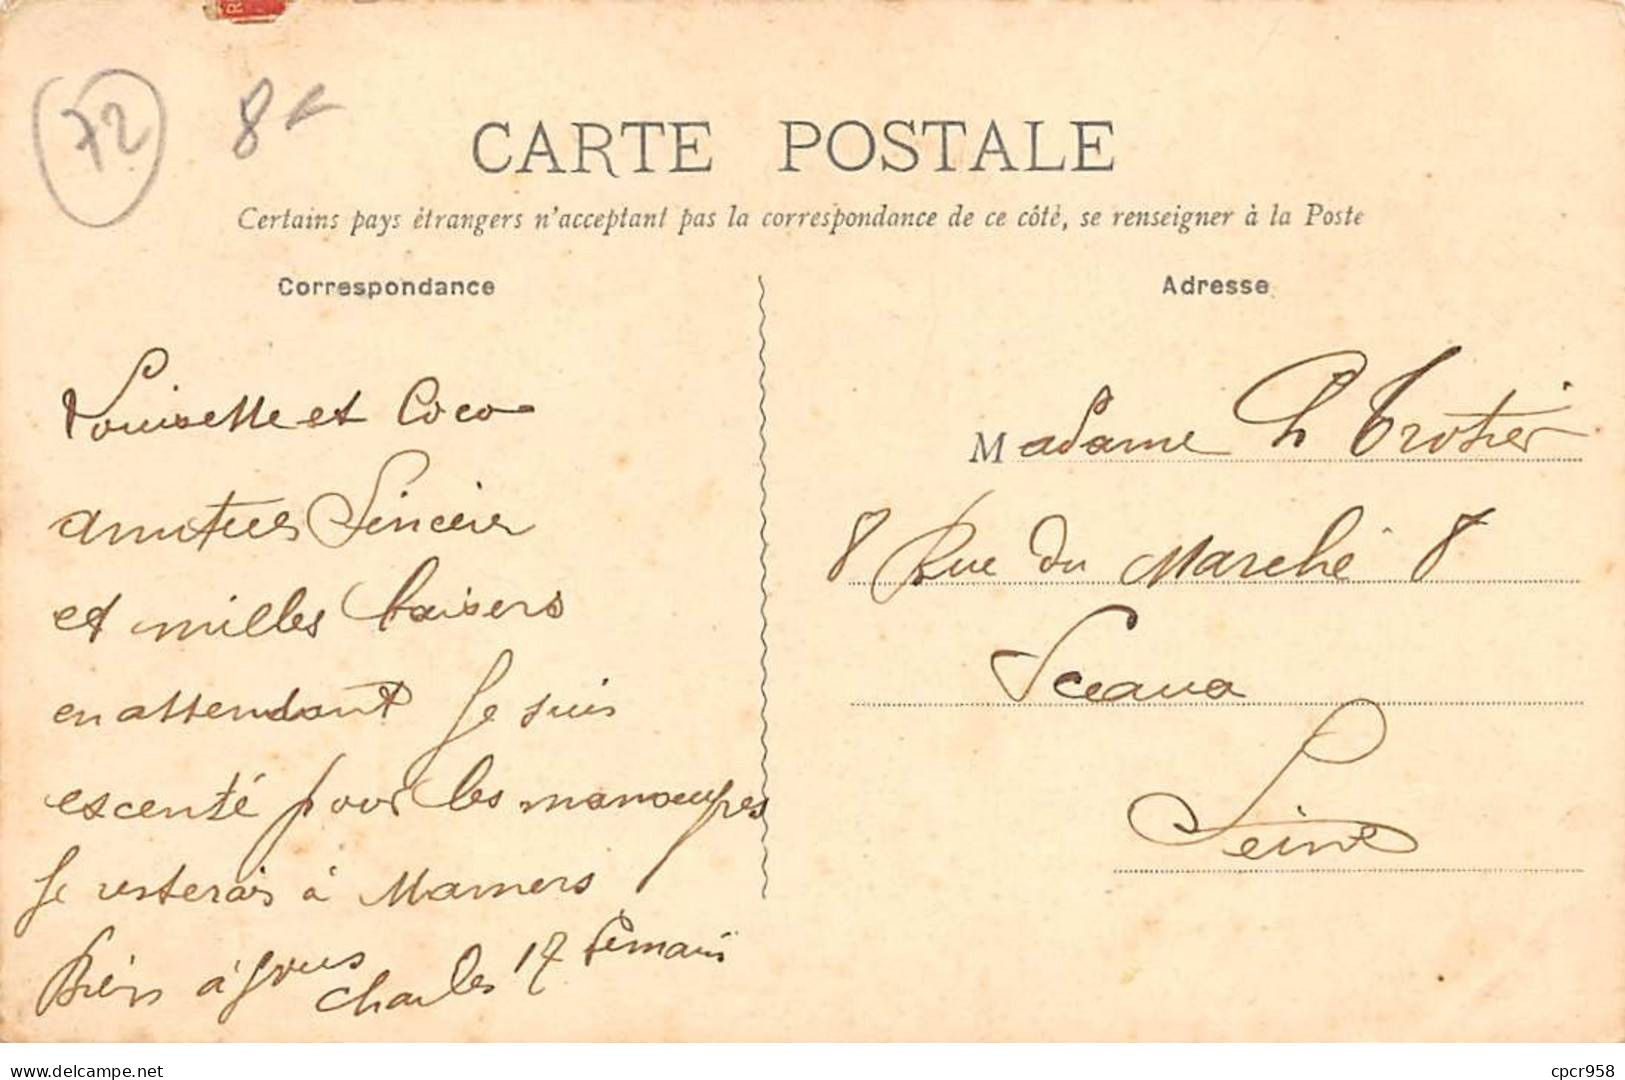 72 8€
CARTE POSTALE
Certains pays étrangers n'acceptant pas la correspondance de ce côté, se renseigner à la Poste
Correspondance
Louisette et Coco
amities Sincères
et milles baisers
en attendant Je suis
escenté pour les manoeuvres
Je resterais à Mamers
Bien à Vous
Charles 17 Semain
Adresse
Madame Ch Trotier
8 Rue du Marché 8
Sceaux
Seine
www.delcampe.net
cpcr958